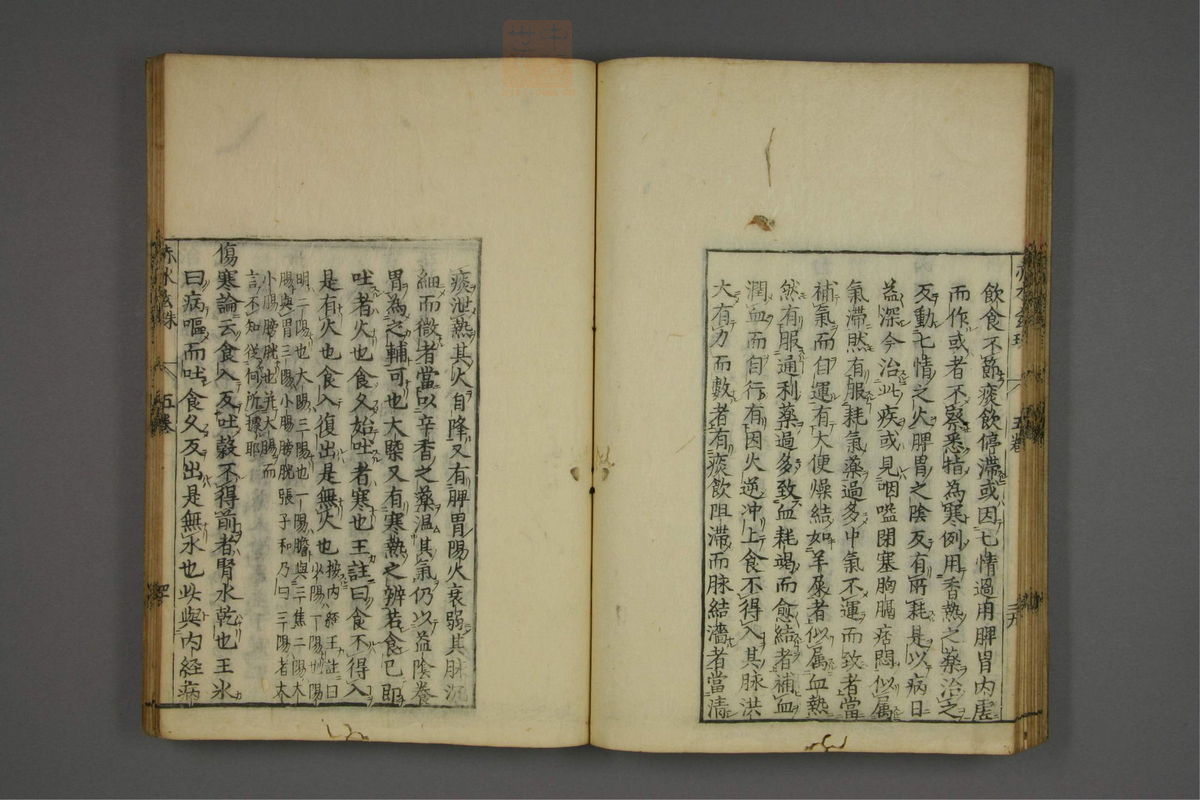 飲食不節痰飲停滯或因七情過用脾胃内虚
而作或者不察悉指為寒例用香熱之藥治之
反動七情之火脾胃之陰反有所耗是以病日
益深今治此疾或見咽嗌閉塞胸膈痞悶似属
氣滯然有服耗氣藥過多中氣不運而致者當
補氣而自運有大便燥結如羊屎者似属血熱
然有服通利藥過多致血耗竭而愈結者補血
潤血而自行有因火逆冲上食不得入其脉洪
大有力而數者有痰飲阻滯而脉結濇者當清
五卷
痰泄熱其火自降又有脾胃陽火衰弱其脉沉
細而微者當以辛香之藥温其氣仍以益陰養
胃為之輔可也大槩又有寒熱之辨若食已即
吐者火也食久始吐者寒也王註曰食不得入
是有火也食入復出是無火也按内經王註曰
明二陽也大陽三陽也一陽膽與三焦二陽大
腸與胃三陽小腸膀胱張子和乃曰三陽者大
小腸膀胱也并大腸而
言不知從何所據耶
傷寒論云食入反吐穀不得前者腎水乾也王氷
曰病嘔而吐食久反出是無水也此與内経病
赤水玄珠
五卷
四